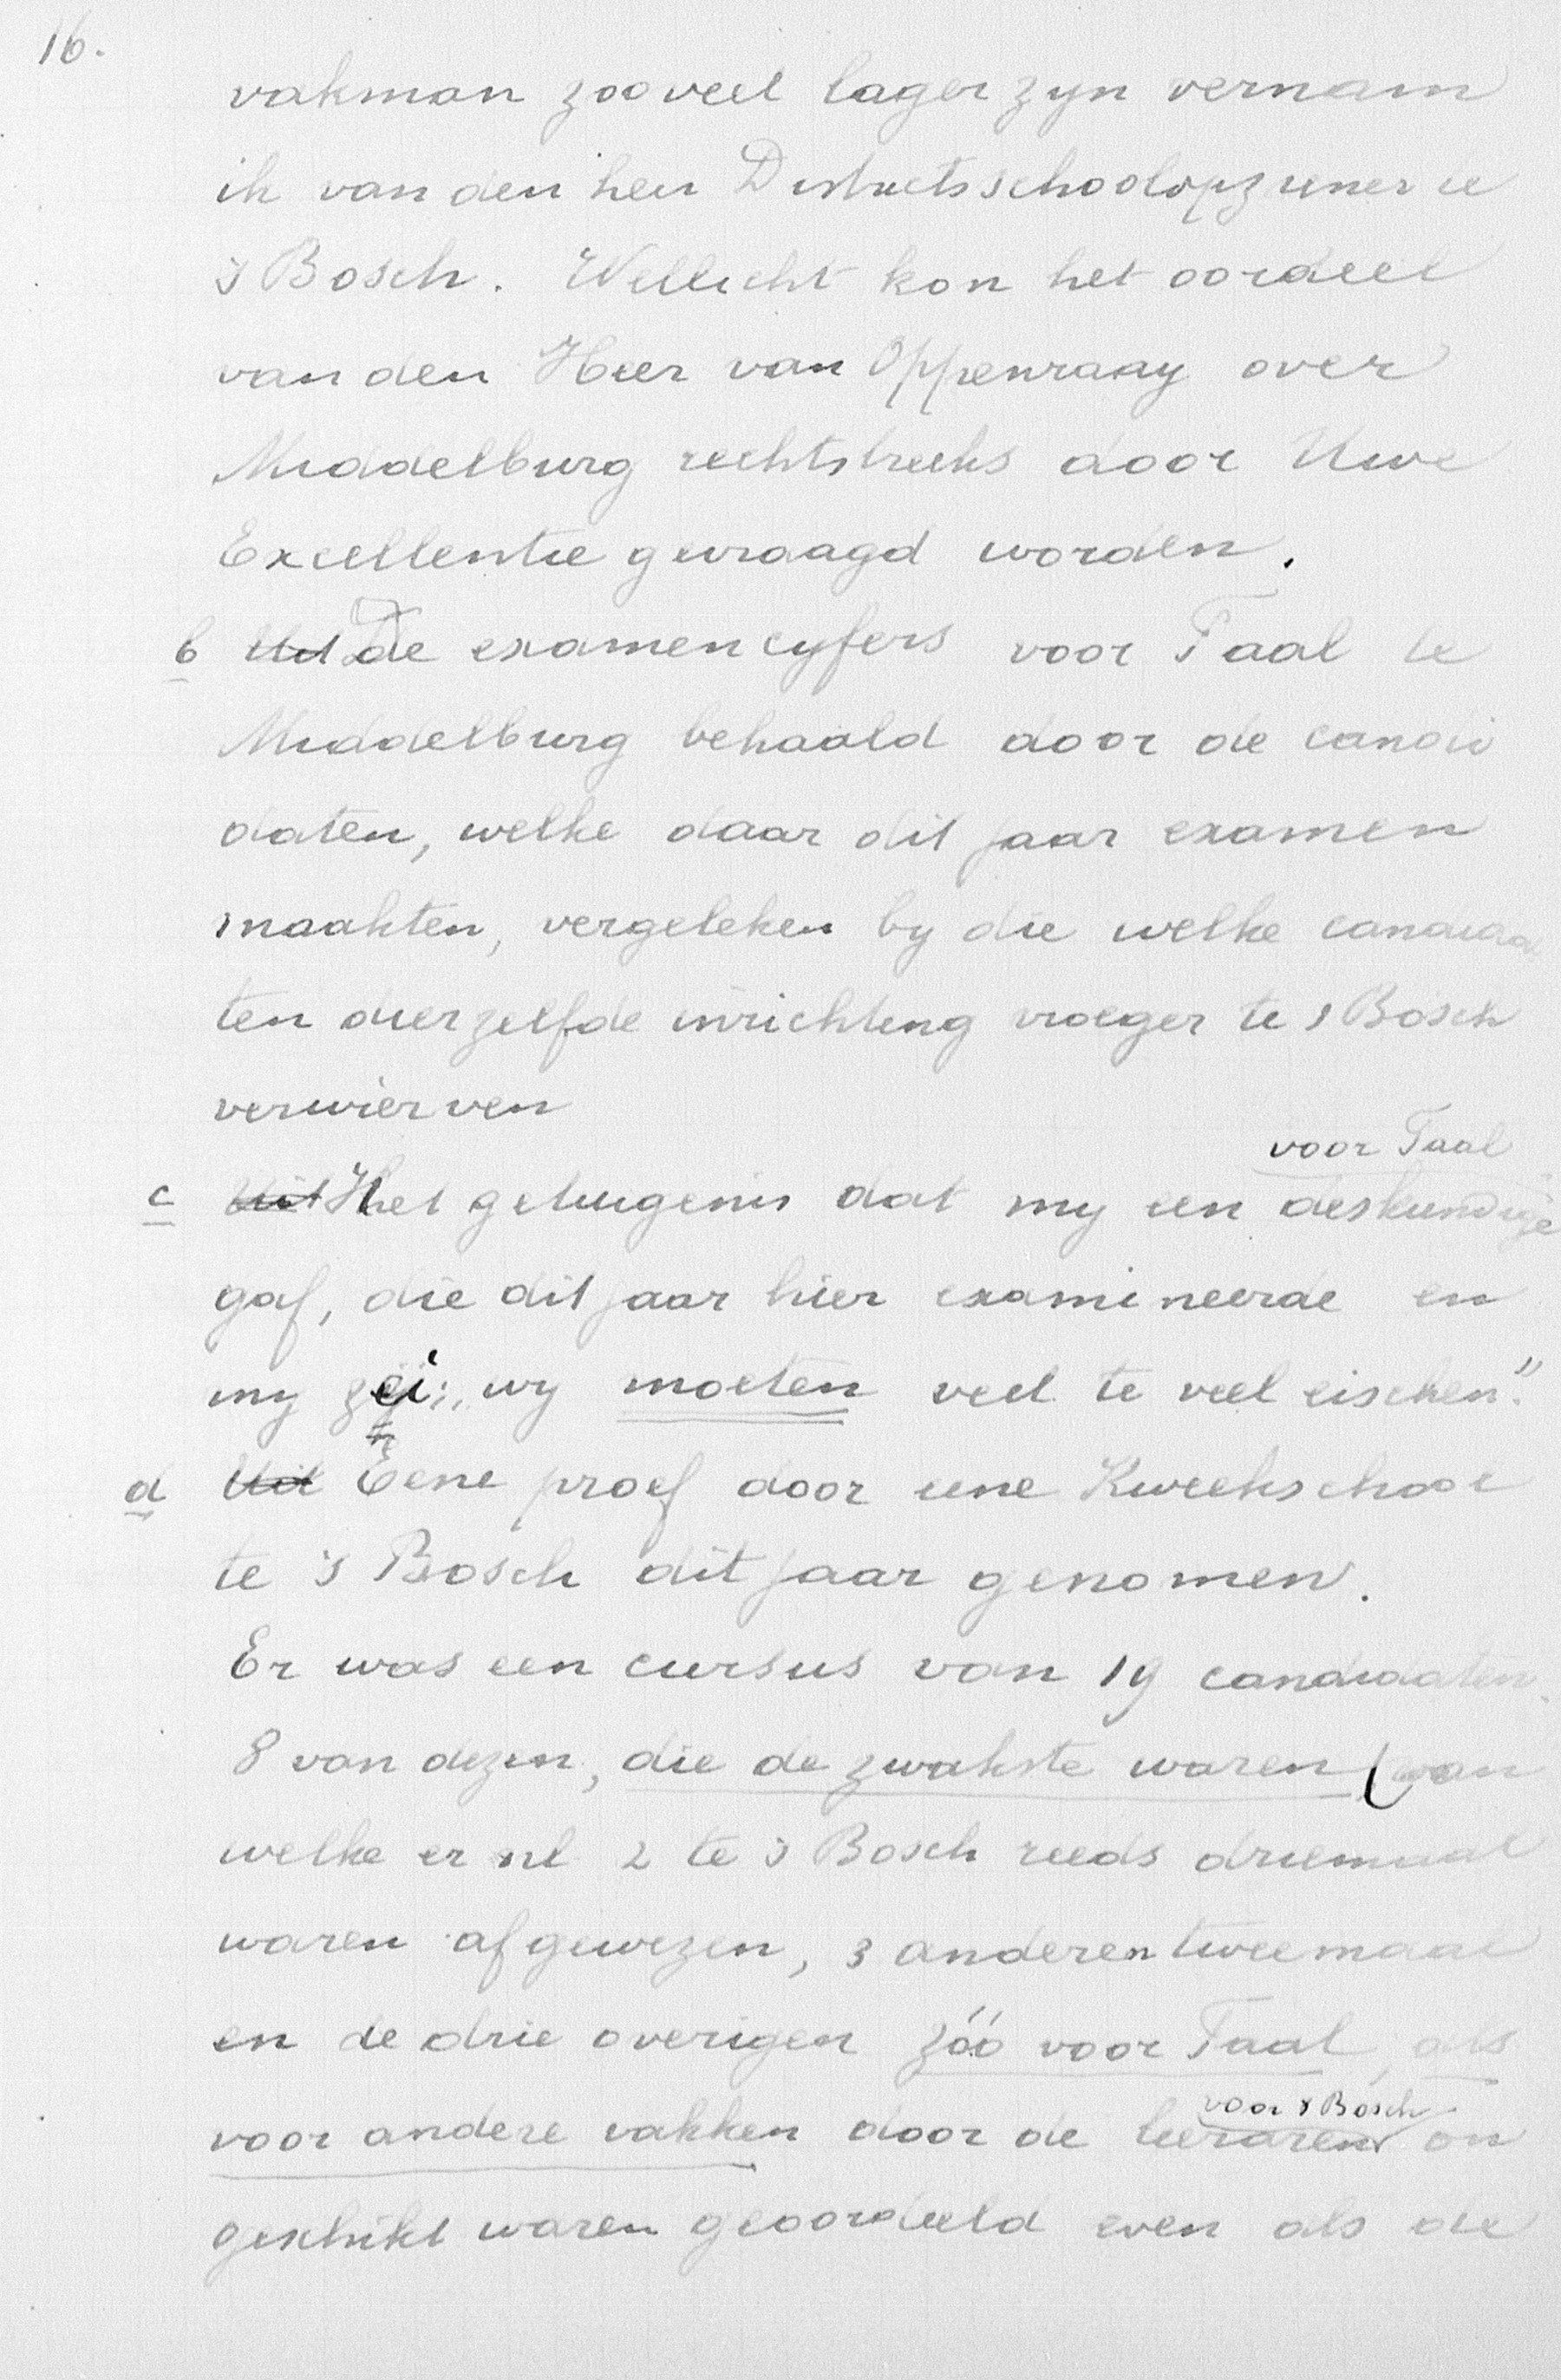 16.
vakman zooveel lager zyn vernam
ik van den heer Districtsschoolopziener te
's Bosch. Wellicht kon het oordeel
van den Heer van Oppenraay over
Middelburg rechtstreeks door Uwe
Excellentie gevraagd worden.
b Uit De examencyfers voor Taal te
Middelburg behaald door de candi
daten, welke daar dit jaar examen
maakten, vergeleken by die welke candidaa
ten dierzelfde inrichting vroeger te 's Bosch
verwierven
voor Taal
c Uit Het getuigenis dat my een deskundige
gaf, die dit jaar hier examineerde en
my zei: „wy moeten veel te veel eischen".
d Uit Eene proef door eene Kweekschool
te 's Bosch dit jaar genomen.
Er was een cursus van 19 candidaten.
8 van dezen, die de zwakste waren (van
welke er nl 2 te 's Bosch reeds driemaal
waren afgewezen, 3 anderen tweemaal
en de drie overigen zóó voor Taal, als
voor 's Bosch
voor andere vakken door de leeraren on
geschikt waren geoordeeld even als de